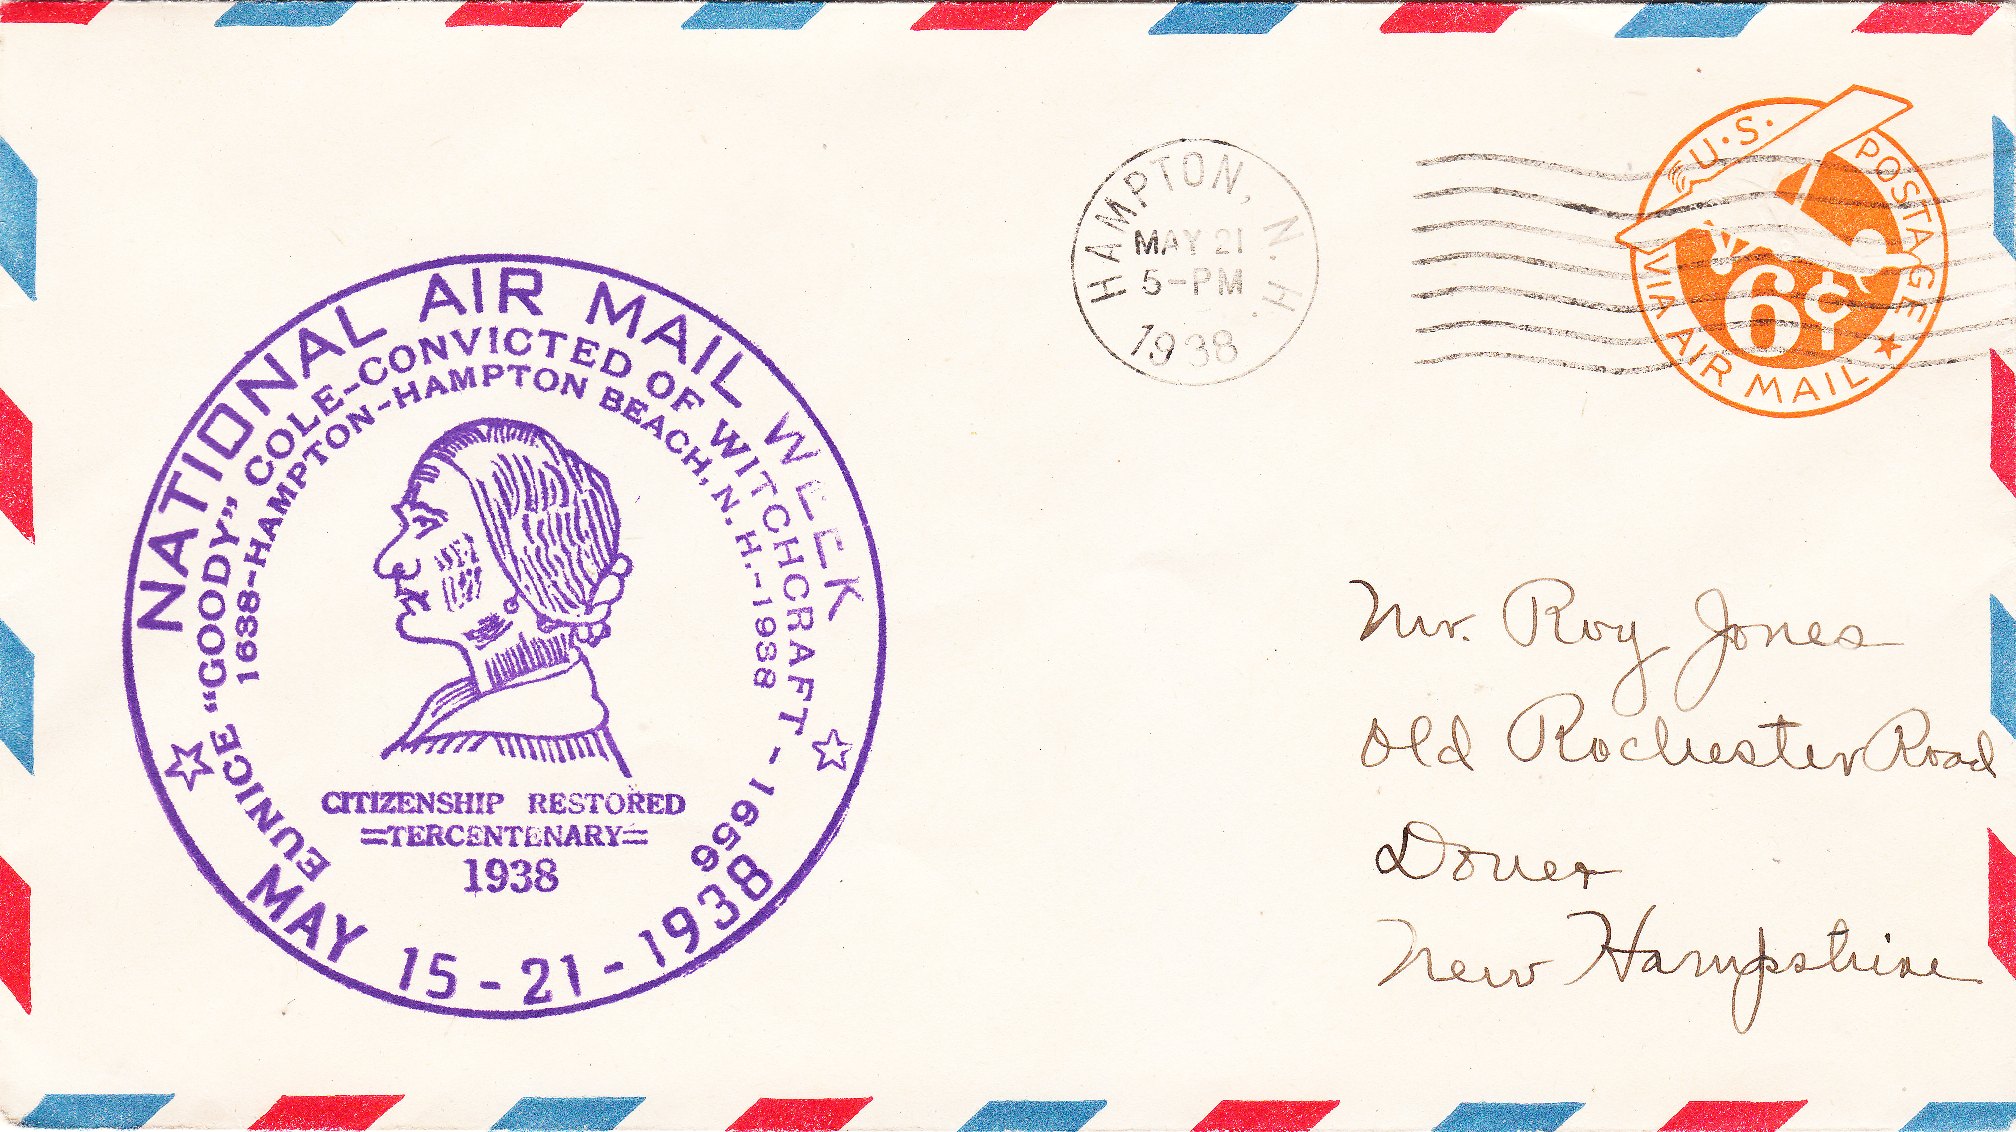 NATIONAL AIR MAIL WEEK
EUNICE "GOODY" COLE-CONVICTED OF WITCHCRAFT - 1656
1638-HAMPTON-HAMPTON BEACH, N.H.-1938
CITIZENSHIP RESTORED
=TERCENTENARY=
1938
MAY 15-21-1938
HAMPTON, N.H.
MAY 21
5-PM
1938
U.S. POSTAGE
6¢
VIA AIR MAIL
Mr. Roy Jones
Old Rochester Road
Dover
New Hampshire